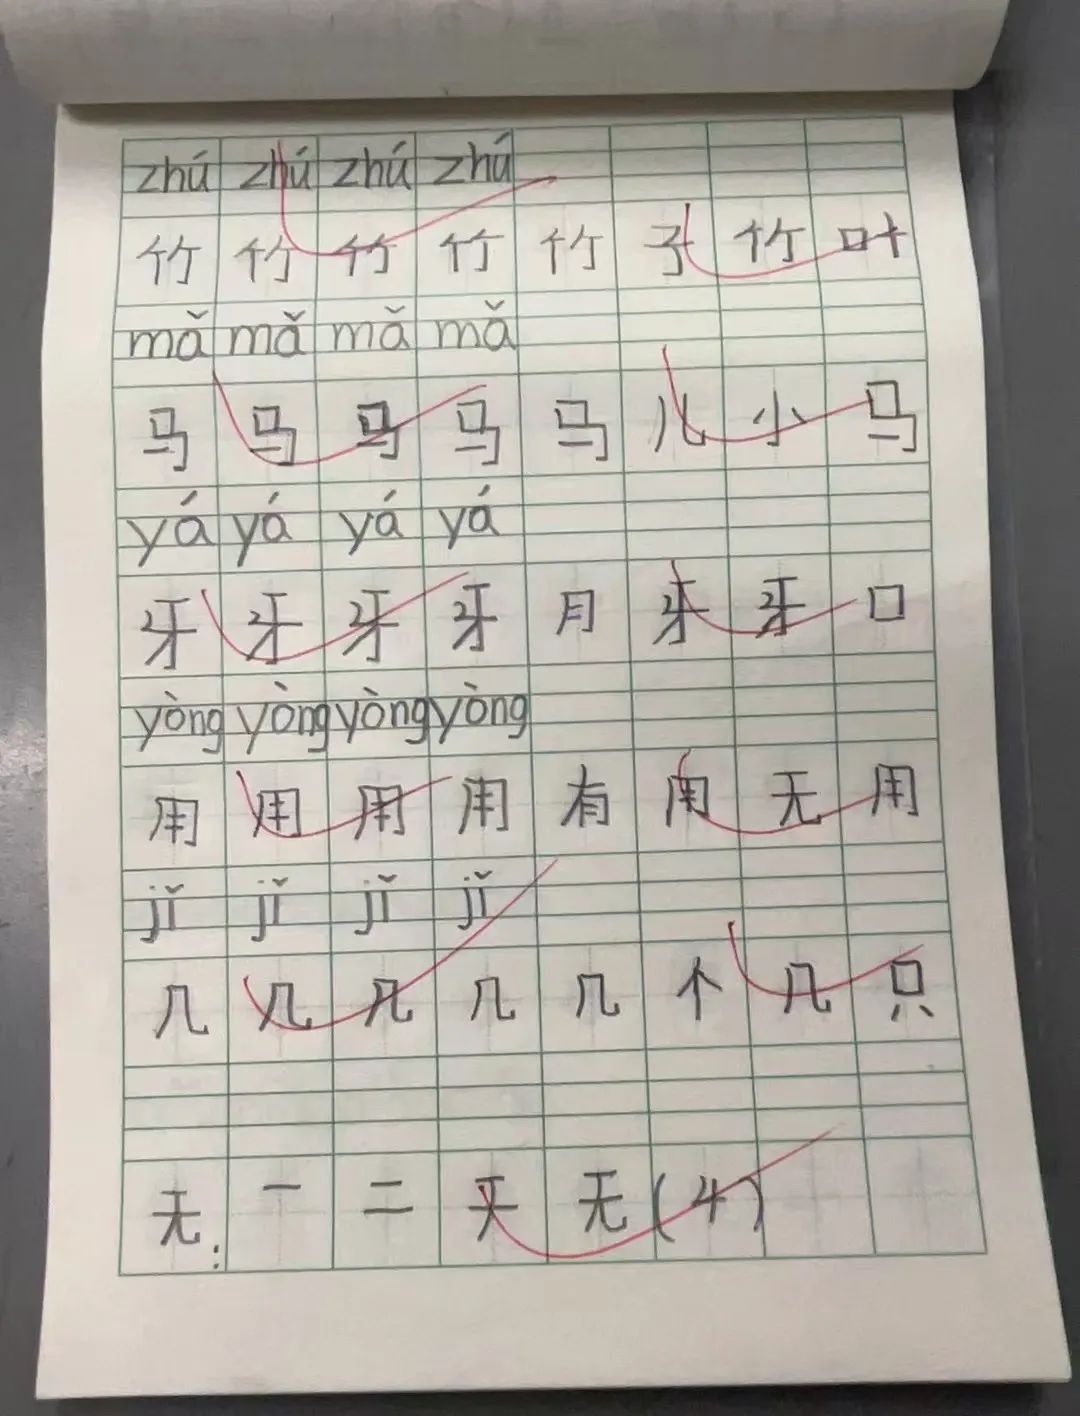 zhú zhú zhú zhú
竹 竹 竹 竹 竹 子 竹 叶
mǎ mǎ mǎ mǎ
马 马 马 马 马 儿 小 马
yá yá yá yá
牙 牙 牙 牙 月 牙 牙 口
yòng yòng yòng yòng
用 用 用 用 有 用 无 用
jǐ jǐ jǐ jǐ
几 几 几 几 几 个 几 只
无: 一 二 无 (4)